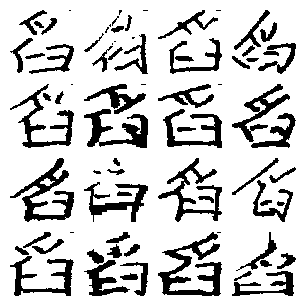 舀舀舀舀
舀舀舀舀
舀舀舀舀
舀舀舀舀